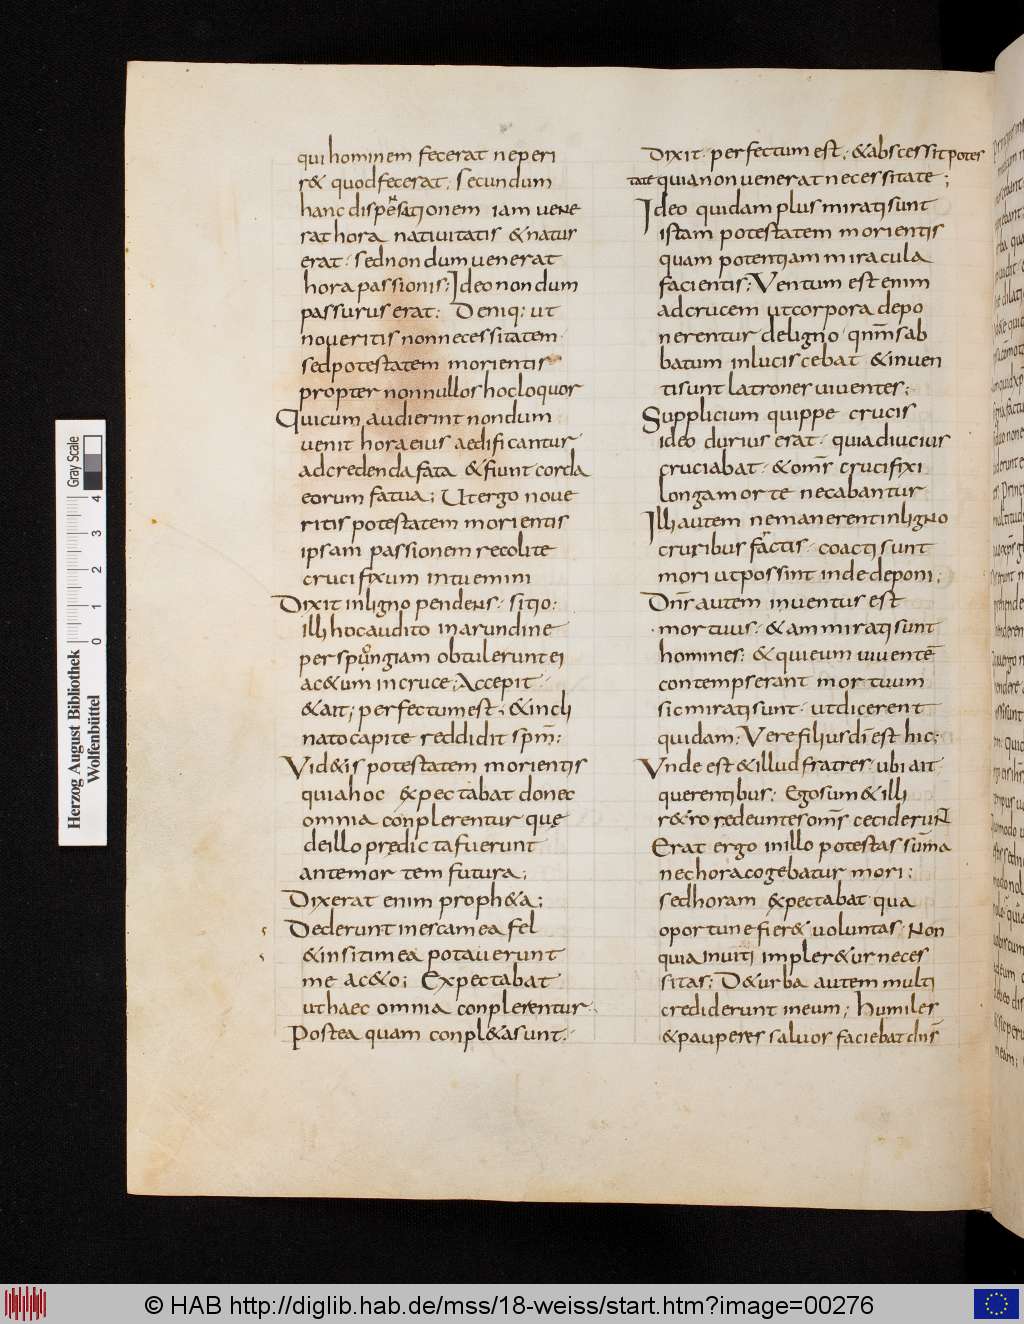 qui hominem fecerat ne peri
r& quod fecerat; secundum
hanc dispensationem iam vene
rat hora nativitatis & natus
erat· sed nondum venerat
hora passionis; Ideo nondum
passurus erat; Deniq; ut
noveritis non necessitatem
sed potestatem morientis
propter nonnullos hoc loquor
Qui cum audierint nondum
venit hora eius aedificantur
ad credenda fata & fiunt corda
eorum fatua; Ut ergo nove
ritis potestatem morientis
ipsam passionem recolite
crucifixum intuemini
Dixit in ligno pendens· sitio;
illi hoc audito in arundine
per spongiam obtulerunt ei
ac&um in cruce; Accepit·
& ait; perfectum est; & incli
nato capite reddidit spm̄;
Vid&is potestatem morientis
quia hoc expectabat donec
omnia conplerentur quę
de illo prędicta fuerunt
ante mortem futura;
Dixerat enim proph&a;
Dederunt in escam ea fel
& in siti mea potaverunt
me ac&o; Expectabat
ut haec omnia conplerentur·
Postea quam conpl&a sunt·
Dixit· perfectum est; & abscessit potes
tate quia non venerat necessitate;
Ideo quidam plus mirati sunt
istam potestatem morientis
quam potentiam miracula
facientis; Ventum est enim
ad crucem ut corpora depo
nerentur de ligno· qnm̄ sab
batum inluciscebat· & inven
ti sunt latrones viventes;
Supplicium quippe crucis
ideo durius erat· quia diucius
cruciabat· & oms̄ crucifixi
longa morte necabantur
Illi autem ne manerent in ligno
cruribus fractis· coacti sunt
mori ut possint inde deponi;
Dns̄ autem inventus est
mortuus· & ammirati sunt
homines; & qui eum viventē
contempserant mortuum
sic mirati sunt· ut dicerent
quidam; Vere filius dī est hic;
Unde est & illud fratres· ubi ait
querentibus; Ego sum & illi
r&ro redeuntes oms̄ ceciderunt
Erat ergo in illo potestas summa
nec hora cogebatur mori;
sed horam expectabat qua
oportune fier& voluntas· Non
quia inviti impler&ur neces
sitas; D&urba autem multi
crediderunt in eum; humiles
& pauperes salvos faciebat dns̄
Herzog August Bibliothek
Wolfenbüttel
0 1 2 3 4
Gray Scale
© HAB http://diglib.hab.de/mss/18-weiss/start.htm?image=00276